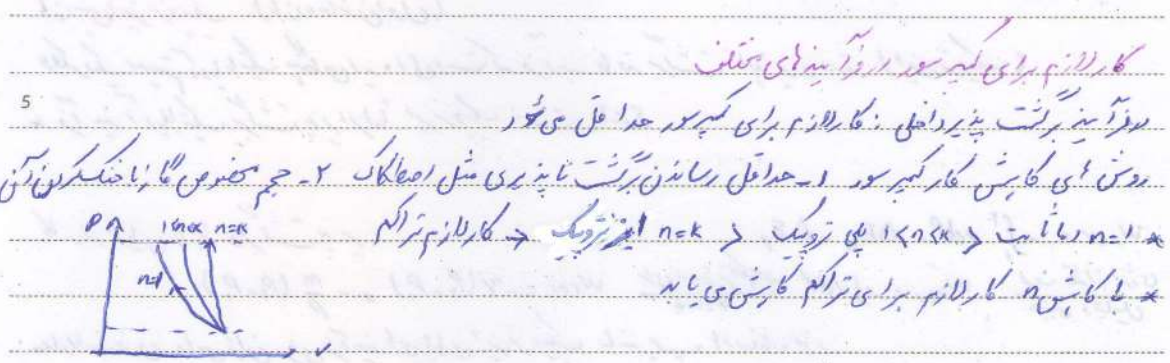 کار لازم برای کمپرسور در فرآیندهای مختلف
5
در فرآیند برگشت پذیر داخلی : کار لازم برای کمپرسور حداقل می شود
روش های کاهش کار کمپرسور ۱- حداقل رساندن برگشت ناپذیری مثل اصطکاک ۲- حجم مخصوص گاز با خنک کردن آن
* n=1 دما ثابت < 1<n<k پلی تروپیک < n=k ایزنتروپیک ⇒ کار لازم تراکم
* با کاهش n کار لازم برای تراکم کاهش می یابد
P 1<n<k n=k
n=1
v